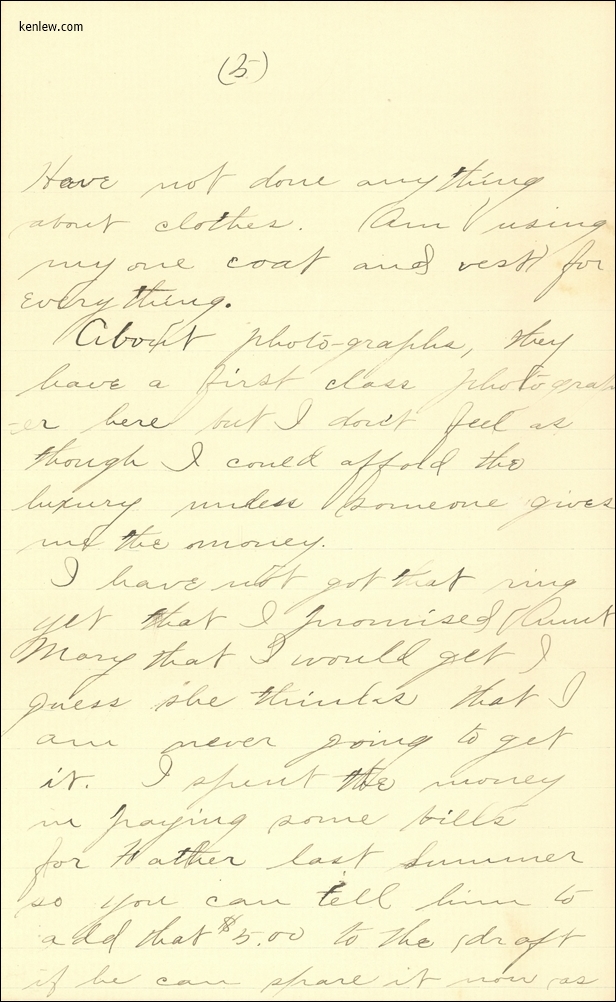 kenlew.com
(5)
Have not done anything
about clothes. Am using
my one coat and vest for
everything.
About photo-graphs, they
have a first class photograph
-er here but I don't feel as
though I could affold the
luxury unless someone gives
me the money.
I have not got that ring
yet that I promised Aunt
Mary that I would get I
guess she thinks that I
am never going to get
it. I spent the money
in paying some bills
for Father last summer
so you can tell him to
add that $5.00 to the draft
if he can spare it now as